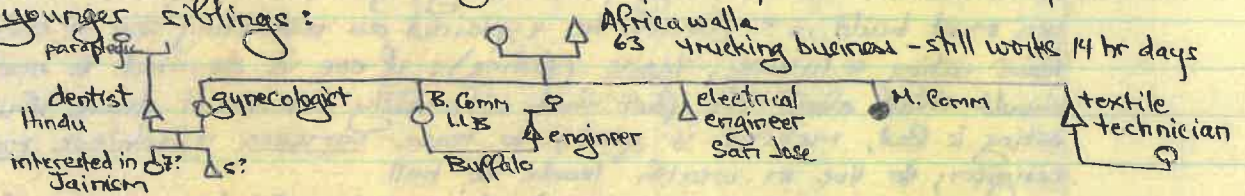 younger siblings:
Africawalla
63 trucking business - still works 14 hr days
paraplegic
dentist
Hindu
gynecologist
B. Comm
LLB
engineer
electrical
engineer
San Jose
M. Comm
textile
technician
interested in
Jainism
7?
5?
Buffalo